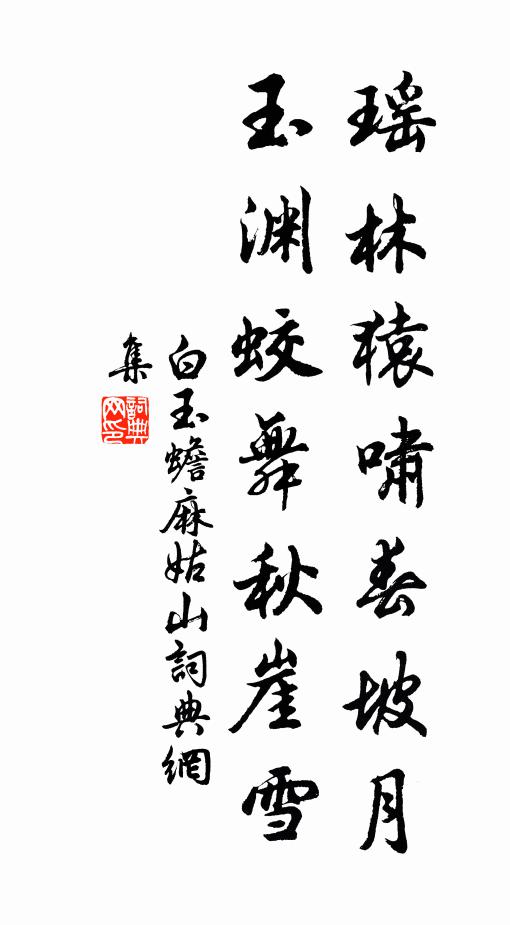 瑶林猿啸春坡月
玉渊蛟舞秋崖雪
白玉蟾麻姑山詞典網
集
詞典
网印